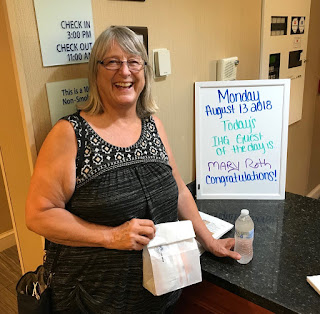 CHECK IN
3:00 PM
CHECK OUT
11:00 AM
This is a
Non-Smo
Monday
August 13 2018
Today's
IHG Guest
of the day is
MARY Roth
Congratulations!